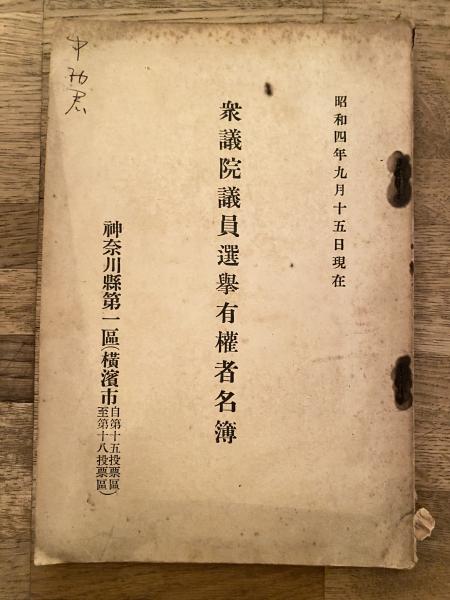 昭和四年九月十五日現在
衆議院議員選擧有權者名簿
神奈川縣第一區(橫濱市自第十五投票區至第十八投票區)